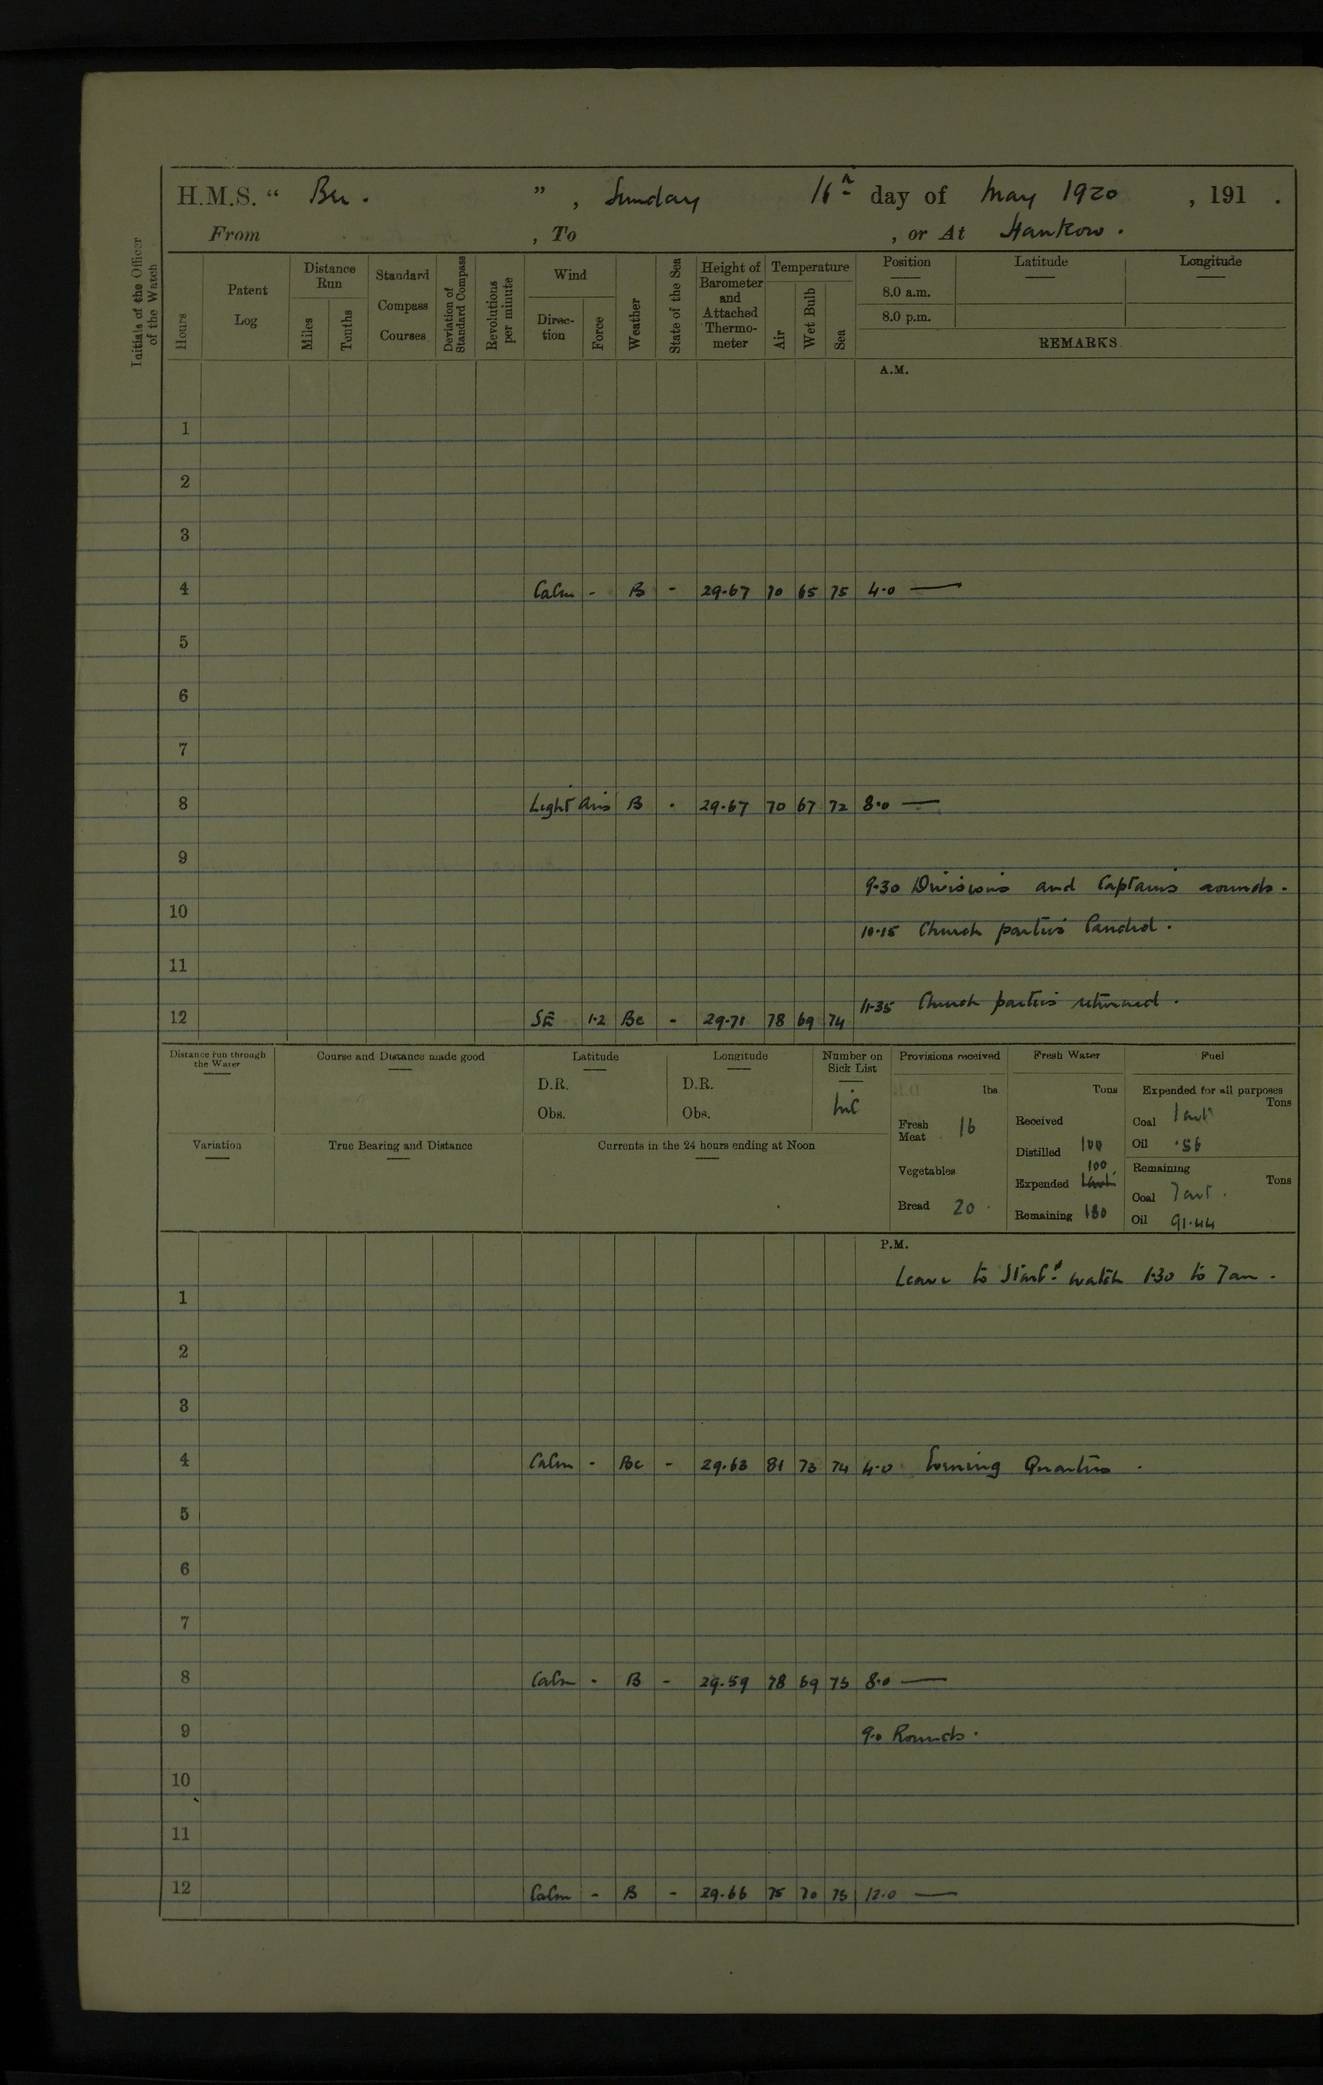 H.M.S. “ Bee. ”, Sunday 16th day of May 1920, 191 .
From , To , or At Hankow.
Initials of the Officer of the Watch
Hours
Patent Log
Distance Run
Miles
Tenths
Standard Compass Courses
Deviation of Standard Compass
Revolutions per minute
Wind
Direc-tion
Force
Weather
State of the Sea
Height of Barometer and Attached Thermo-meter
Temperature
Air
Wet Bulb
Sea
Position
8.0 a.m.
8.0 p.m.
Latitude
Longitude
REMARKS
A.M.
1
2
3
4 Calm - B - 29.67 70 65 75 4.0 —
5
6
7
8 Light airs B . 29.67 70 67 72 8.0 —
9
9.30 Divisions and Captains rounds.
10
10.15 Church parties landed.
11
11.35 Church parties returned.
12 SE 1.2 Bc - 29.71 78 69 74
Distance run through the Water
Course and Distance made good
Latitude
D.R.
Obs.
Longitude
D.R.
Obs.
Number on Sick List
nil
Variation
True Bearing and Distance
Currents in the 24 hours ending at Noon
Provisions received
lbs
Fresh Meat 16
Vegetables
Bread 20
Fresh Water
Tons
Received
Distilled 100
Expended 100
Remaining 180
Fuel
Expended for all purposes
Tons
Coal 1 cwt
Oil .56
Remaining
Tons
Coal 7 cwt.
Oil 91.44
P.M.
Leave to Starbd watch 1.30 to 7am.
1
2
3
4 Calm - Bc - 29.63 81 73 74 4.0 Evening Quarters.
5
6
7
8 Calm - B - 29.59 78 69 75 8.0 —
9 9.0 Rounds.
10
11
12 Calm - B - 29.66 75 70 75 12.0 —